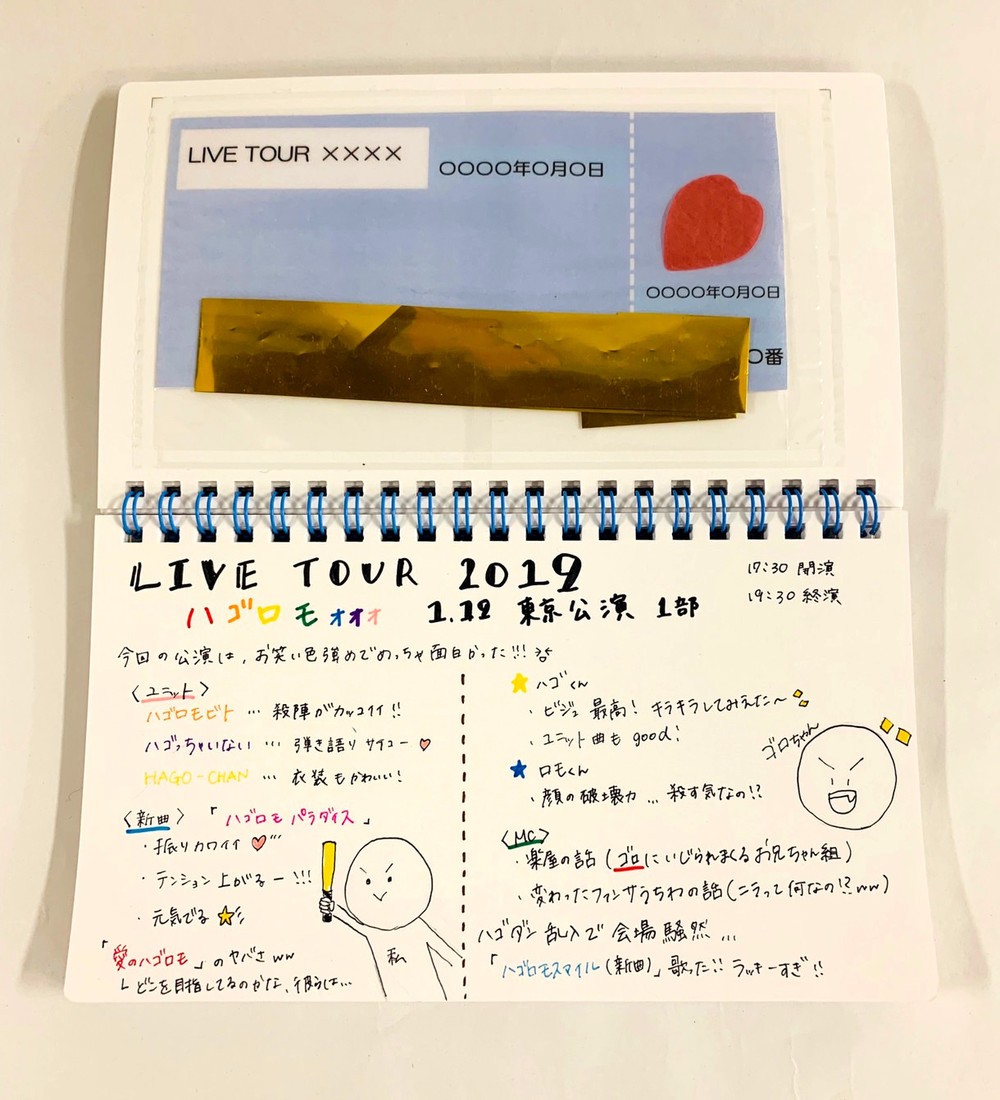 LIVE TOUR ××××
〇〇〇〇年〇月〇日
〇〇〇〇年〇月〇日
〇番
LIVE TOUR 2019
ハゴロモォォォ 1.12 東京公演 1部
17:30 開演
19:30 終演
今回の公演は、お笑い色強めでめっちゃ面白かった!!!
〈ユニット〉
ハゴロモビト … 殺陣がカッコイイ!!
ハゴっちゃいない … 弾き語りサイコー♡
HAGO-CHAN … 衣装もかわいい!
〈新曲〉 「ハゴロモパラダイス」
・振りカワイイ♡
・テンション上がるー!!!
・元気でる☆
「愛のハゴロモ」のヤバさww
└どこを目指してるのかな、彼らは…
私
★ハゴくん
・ビジュ最高! キラキラしてみえた〜
・ユニット曲も good!
★ロモくん
・顔の破壊力…殺す気なの!?
ゴロちゃん
〈MC〉
・楽屋の話(ゴロにいじられまくるお兄ちゃん組)
・変わったファンサうちわの話(ニラって何なの!?ww)
ハゴダン乱入で会場騒然…
「ハゴロモスマイル(新曲)」歌った!!ラッキーすぎ!!